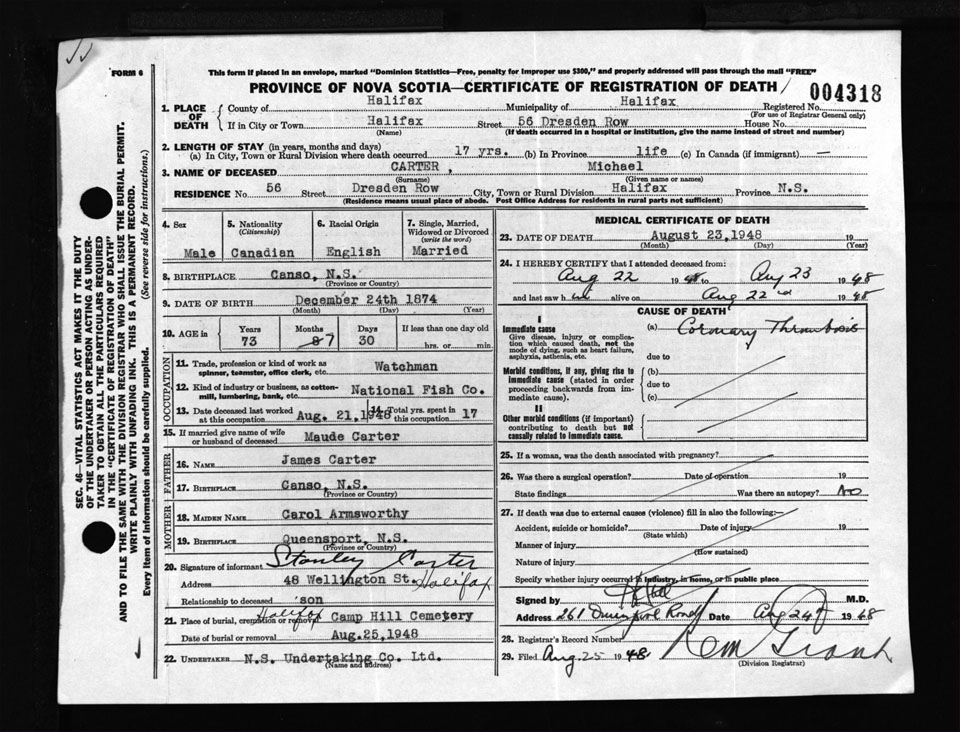 FORM 6
This form if placed in an envelope, marked "Dominion Statistics—Free, penalty for improper use $300," and properly addressed will pass through the mail "FREE"
PROVINCE OF NOVA SCOTIA—CERTIFICATE OF REGISTRATION OF DEATH
004318
1. PLACE OF DEATH
County of Halifax Municipality of Halifax Registered No.
(For use of Registrar General only)
If in City or Town Halifax Street 56 Dresden Row House No.
(Name) (If death occurred in a hospital or institution, give the name instead of street and number)
2. LENGTH OF STAY (in years, months and days)
(a) In City, Town or Rural Division where death occurred 17 yrs. (b) In Province life (c) In Canada (if immigrant) —
3. NAME OF DECEASED CARTER, Michael
(Surname) (Given name or names)
RESIDENCE No. 56 Street Dresden Row City, Town or Rural Division Halifax Province N.S.
(Residence means usual place of abode. Post Office Address for residents in rural parts not sufficient)
4. Sex
Male
5. Nationality
(Citizenship)
Canadian
6. Racial Origin
English
7. Single, Married, Widowed or Divorced
(write the word)
Married
8. BIRTHPLACE Canso, N.S.
(Province or Country)
9. DATE OF BIRTH December 24th 1874
(Month) (Day) (Year)
10. AGE in Years Months Days If less than one day old
73 8 7 30 hrs. or min.
OCCUPATION
11. Trade, profession or kind of work as
spinner, teamster, office clerk, etc. Watchman
12. Kind of industry or business, as cotton-
mill, lumbering, bank, etc. National Fish Co.
13. Date deceased last worked
at this occupation Aug. 21, 1948
14. Total yrs. spent in
this occupation 17
15. If married give name of wife
or husband of deceased Maude Carter
FATHER
16. NAME James Carter
17. BIRTHPLACE Canso, N.S.
(Province or Country)
MOTHER
18. MAIDEN NAME Carol Armsworthy
19. BIRTHPLACE Queensport, N.S.
(Province or Country)
20. Signature of informant Stanley Carter
Address 48 Wellington St. Halifax
Relationship to deceased son
21. Place of burial, cremation or removal Halifax Camp Hill Cemetery
Date of burial or removal Aug.25,1948
22. UNDERTAKER N.S. Undertaking Co. Ltd.
(Name and address)
MEDICAL CERTIFICATE OF DEATH
23. DATE OF DEATH August 23,1948 19
(Month) (Day) (Year)
24. I HEREBY CERTIFY that I attended deceased from:
Aug 22 1948 to Aug 23 1948
and last saw him alive on Aug 22nd 1948
CAUSE OF DEATH
I
Immediate cause
Give disease, injury or complication which caused death, not the mode of dying, such as heart failure, asphyxia, asthenia, etc.
(a) Coronary Thrombosis
due to
Morbid conditions, if any, giving rise to immediate cause (stated in order proceeding backwards from immediate cause).
(b)
due to
(c)
II
Other morbid conditions (if important) contributing to death but not causally related to immediate cause.
25. If a woman, was the death associated with pregnancy?
26. Was there a surgical operation? Date of operation 19
State findings Was there an autopsy? No
27. If death was due to external causes (violence) fill in also the following:
Accident, suicide or homicide? Date of injury 19
(State which)
Manner of injury
(How sustained)
Nature of injury
Specify whether injury occurred in industry, in home, or in public place
Signed by M.D.
Address 261 Road Date Aug 24 1948
28. Registrar's Record Number
29. Filed Aug. 25 1948
(Division Registrar)
SEC. 46—VITAL STATISTICS ACT MAKES IT THE DUTY
OF THE UNDERTAKER OR PERSON ACTING AS UNDER-
TAKER TO OBTAIN ALL THE PARTICULARS REQUIRED
IN THE "CERTIFICATE OF REGISTRATION OF DEATH"
AND TO FILE THE SAME WITH THE DIVISION REGISTRAR WHO SHALL ISSUE THE BURIAL PERMIT.
WRITE PLAINLY WITH UNFADING INK. THIS IS A PERMANENT RECORD.
Every item of Information should be carefully supplied. (See reverse side for instructions.)